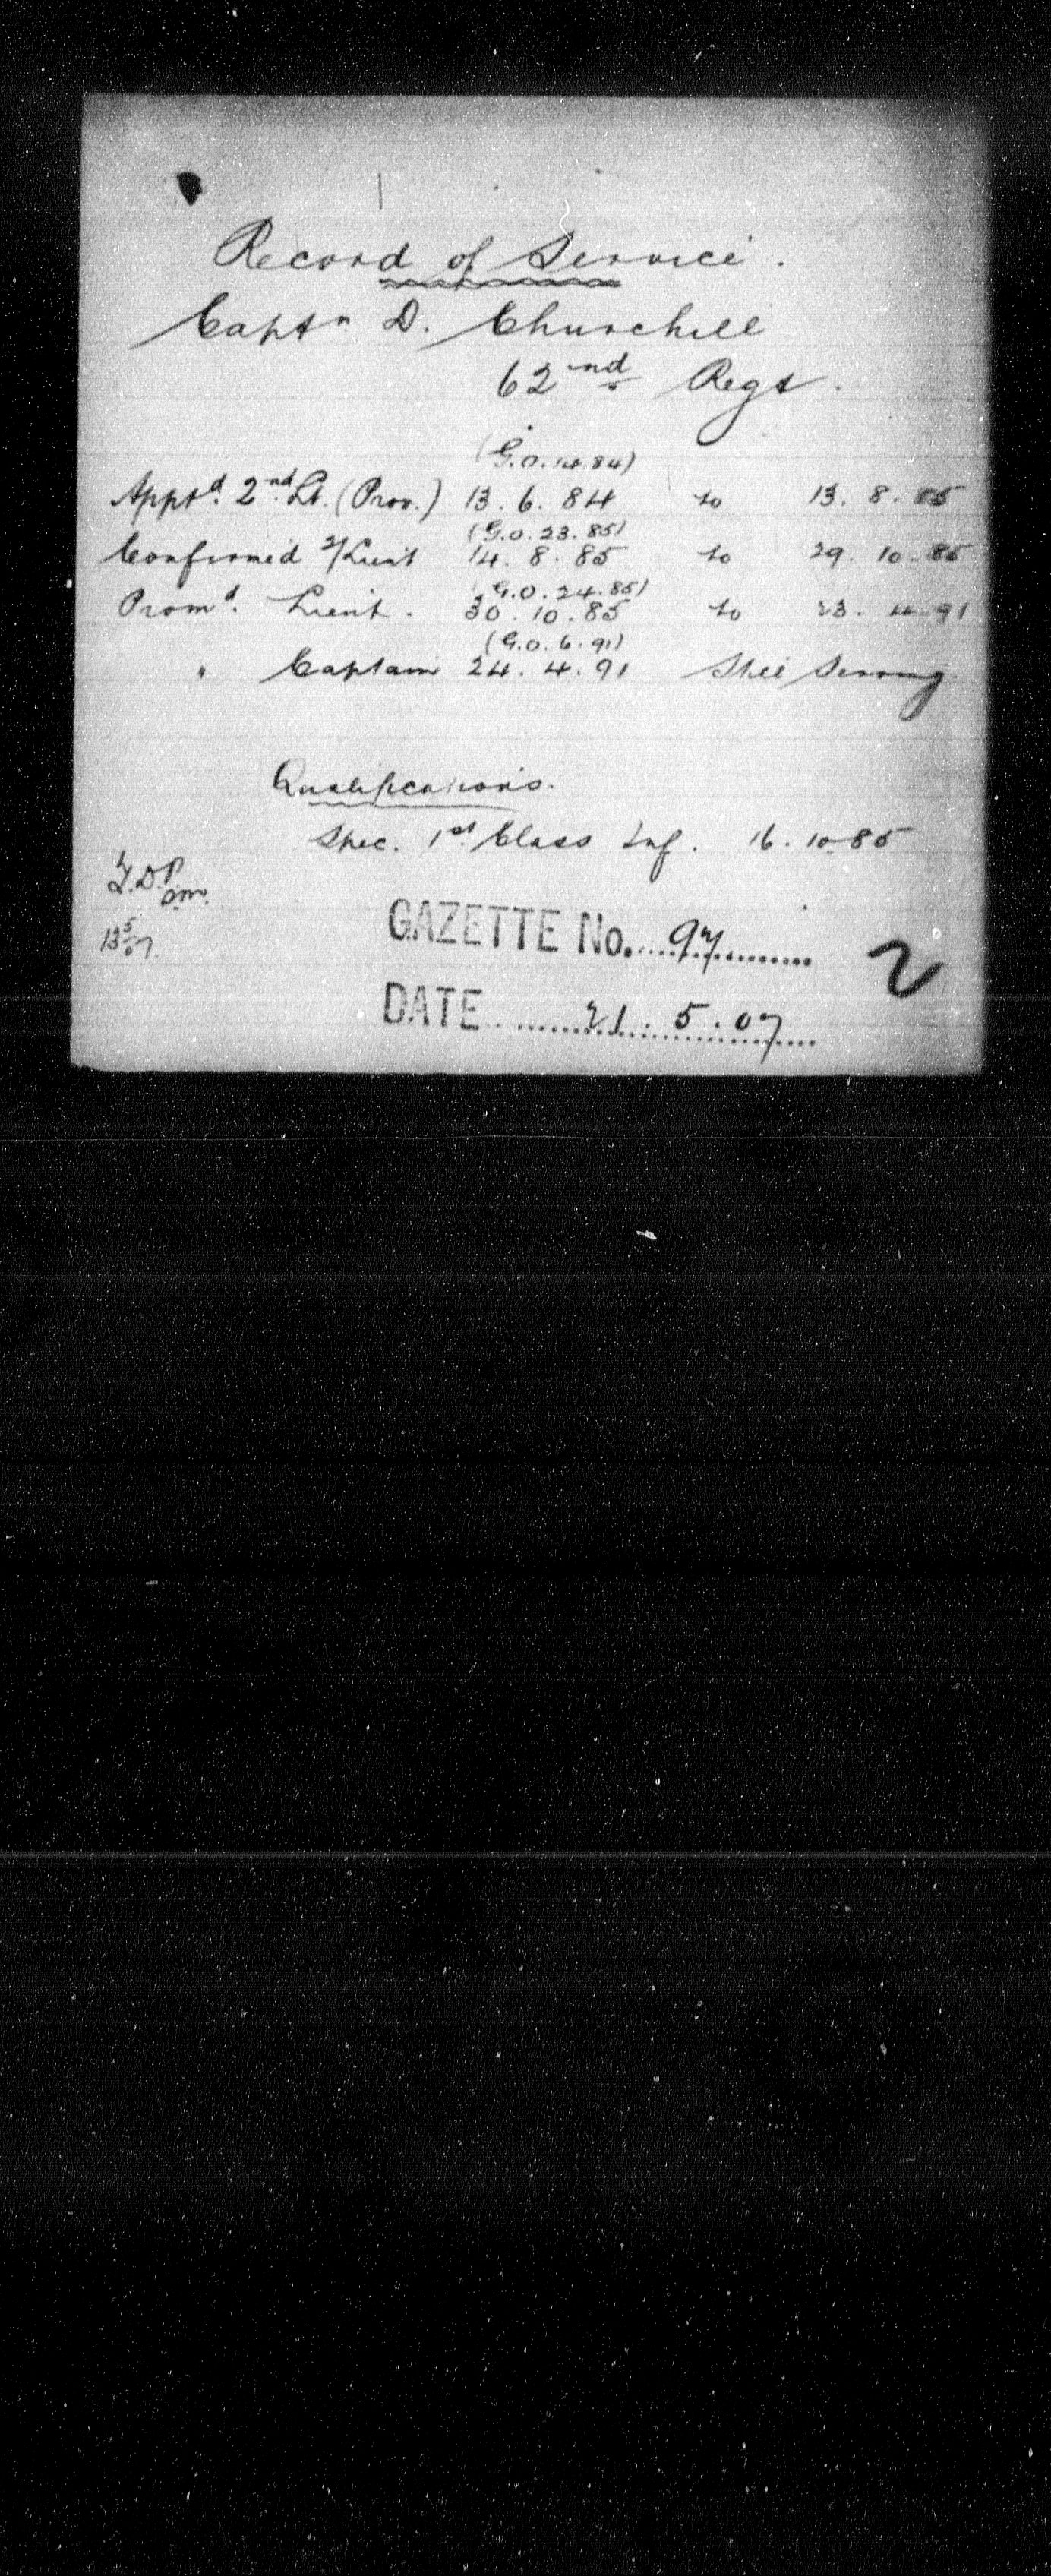 Record of Service.
Captn D. Churchill
62nd Regt.
(G.O. 14.84)
Apptd. 2nd Lt. (Prov.) 13. 6. 84 to 13. 8. 85
(G.O. 23. 85)
Confirmed 2/Lieut 14. 8. 85 to 29. 10. 85
(G.O. 24. 85)
Promd. Lieut. 30. 10. 85 to 23. 4. 91
(G.O. 6. 91)
" Captain 24. 4. 91 Still Serving
Qualifications.
Spec. 1st Class Inf. 16. 10. 85
13 5/07.
GAZETTE No. 97
2
DATE 21. 5. 07